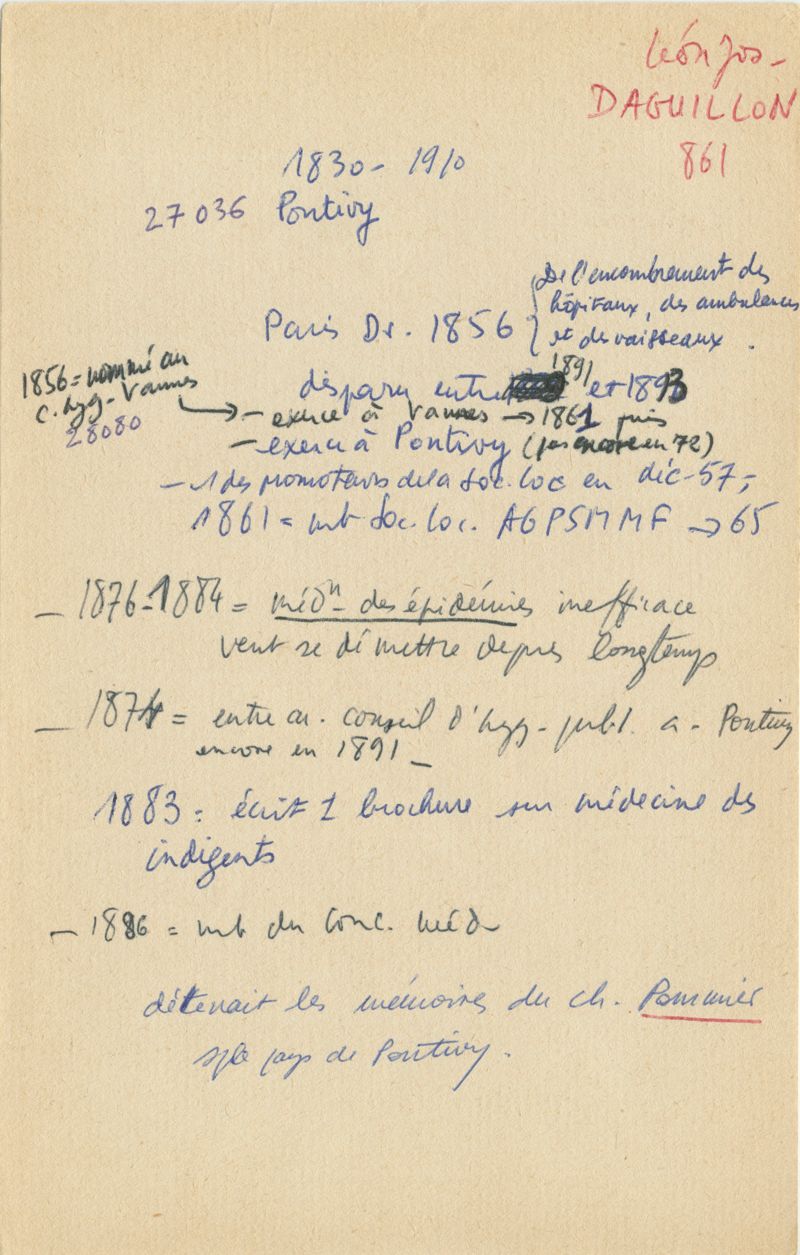 Léon Jos-
DAGUILLON
861
1830 - 1910
27036 Pontivy
Paris Dr. 1856
De l'encombrement des
hôpitaux, des ambulances
et des vaisseaux.
disparu entre 1891 et 1893
1856 = nommé au
C. hyg- Vannes
28080
- exerce à Vannes → 1861 puis
- exerce à Pontivy (pas encore en 72)
- 1 des promoteurs de la Soc. loc en déc-57,
1861 = mb Soc. loc. AGPSMMF → 65
- 1876-1884 = médn- des épidémies inefficace
veut se démettre depuis longtemps
- 1874 = entre au. conseil d'hyg- publ. à - Pontivy
encore en 1891 -
1883 = écrit 1 brochure sur médecine des
indigents
- 1886 = mb du Conc. Méd-
détenait les mémoires du ch. Pommier
s/le pays de Pontivy.